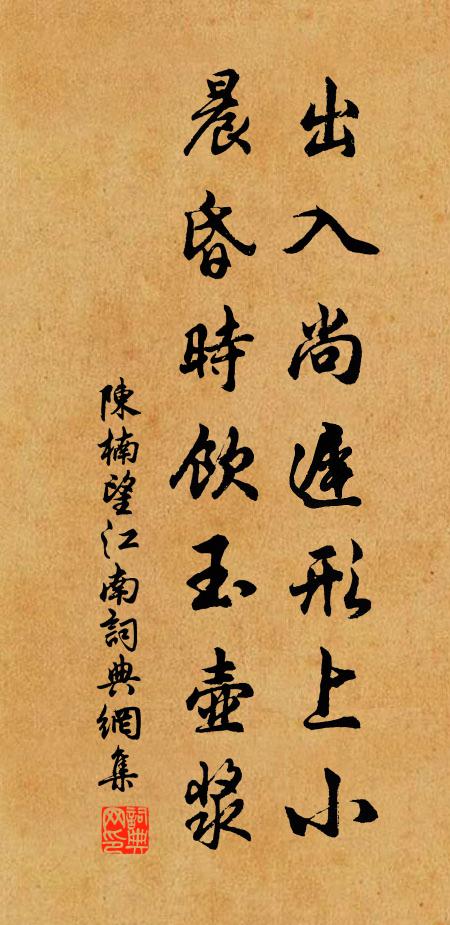 出入尚遲形上小
晨昏時飲玉壺漿
陳楠望江南詞典網集
詞典
网印